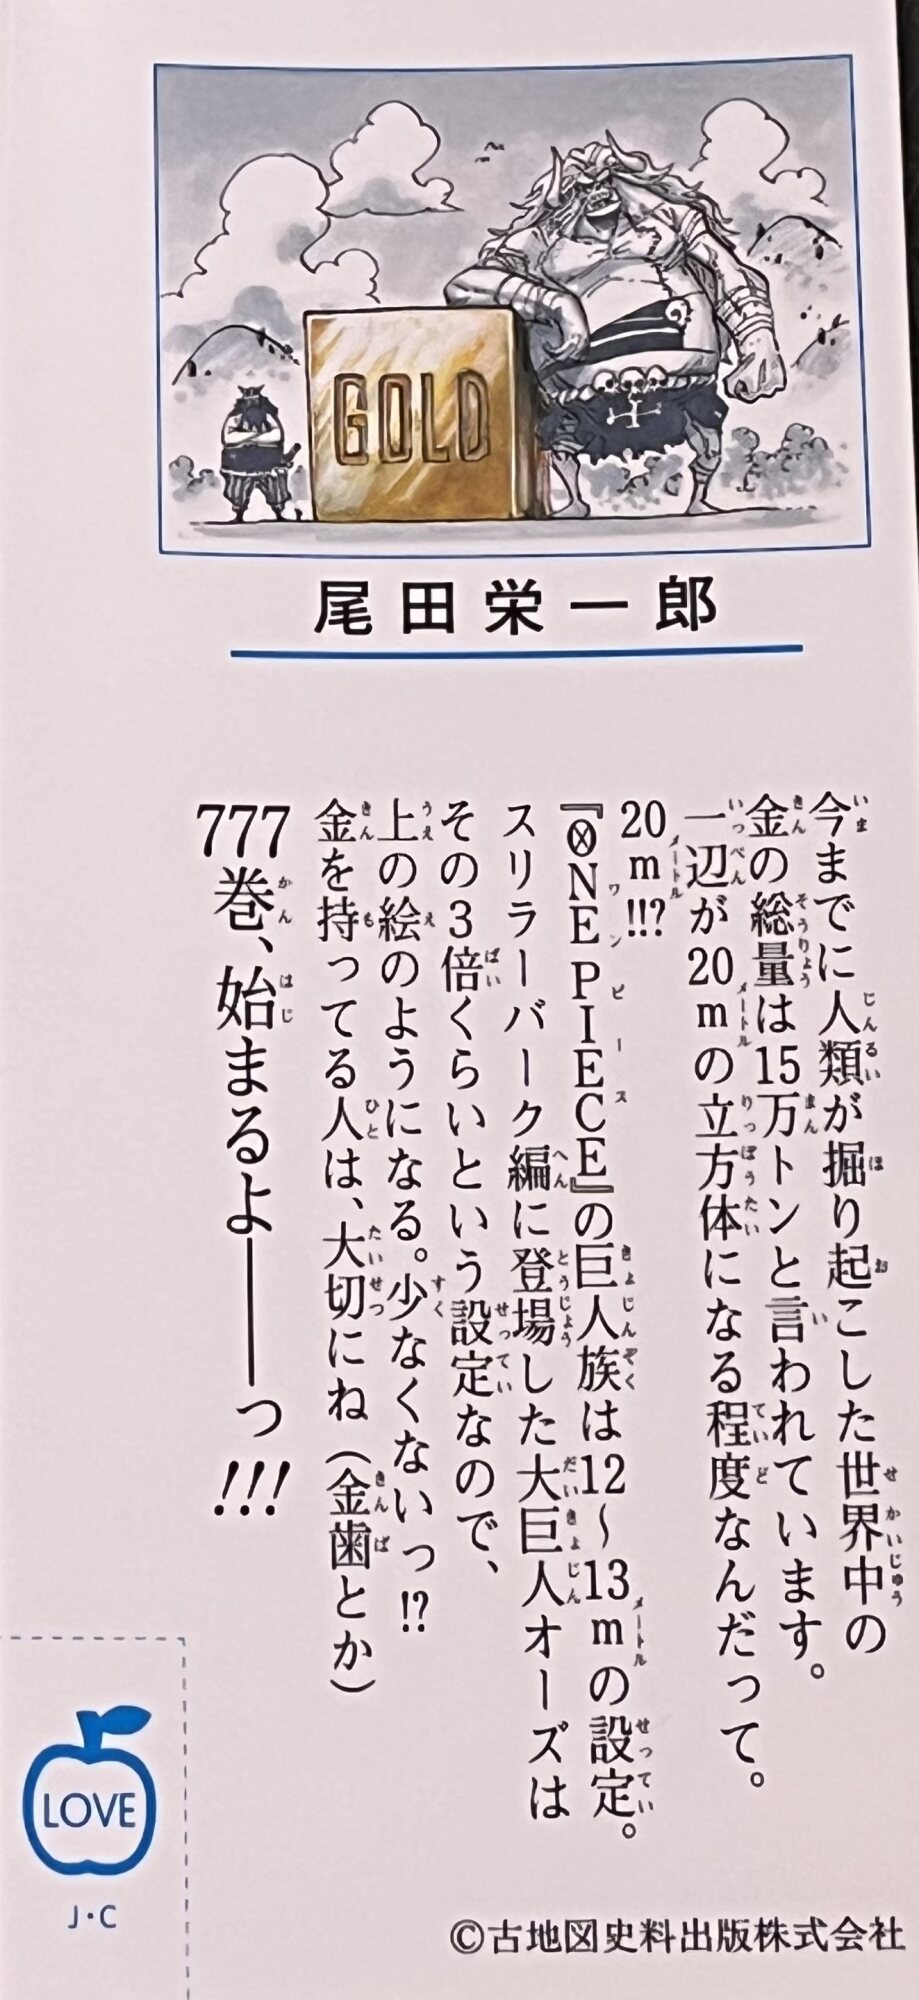 GOLD
尾田栄一郎
今までに人類が掘り起こした世界中の
金の総量は15万トンと言われています。
一辺が20mの立方体になる程度なんだって。
20m!!?
『ONE PIECE』の巨人族は12〜13mの設定。
スリラーバーク編に登場した大巨人オーズは
その3倍くらいという設定なので、
上の絵のようになる。少なくないっ!?
金を持ってる人は、大切にね(金歯とか)
777巻、始まるよ――っ!!!
LOVE
J・C
©古地図史料出版株式会社